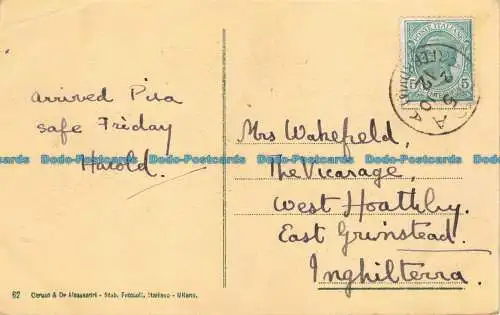 POSTE ITALIANE
5 5
arrived Pisa
safe Friday
Harold.
Mrs Wakefield,
The Vicarage,
West Hoathly.
East Grinstead.
Inghilterra.
Dodo-Postcards Dodo-Postcards Dodo-Postcards Dodo-Postcards Dodo-Postcards
62 - Stab. Fotocoll. Italiano - Milano.